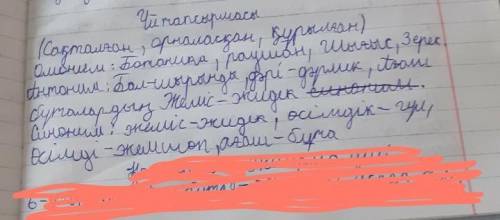 Үй тапсырмасы
(Сақталған, орналасқан, құрылған)
Омоним: Ботаника, раушан, Шығыс, Зерек.
Антоним: Бал-шырынды, дәрі-дәрмек, Ағаш
бұталардың Жеміс-жидек синоним.
Синоним: жеміс-жидек, өсімдік-гүл,
Өсімді-жемшөп, ағаш-бұта
6-